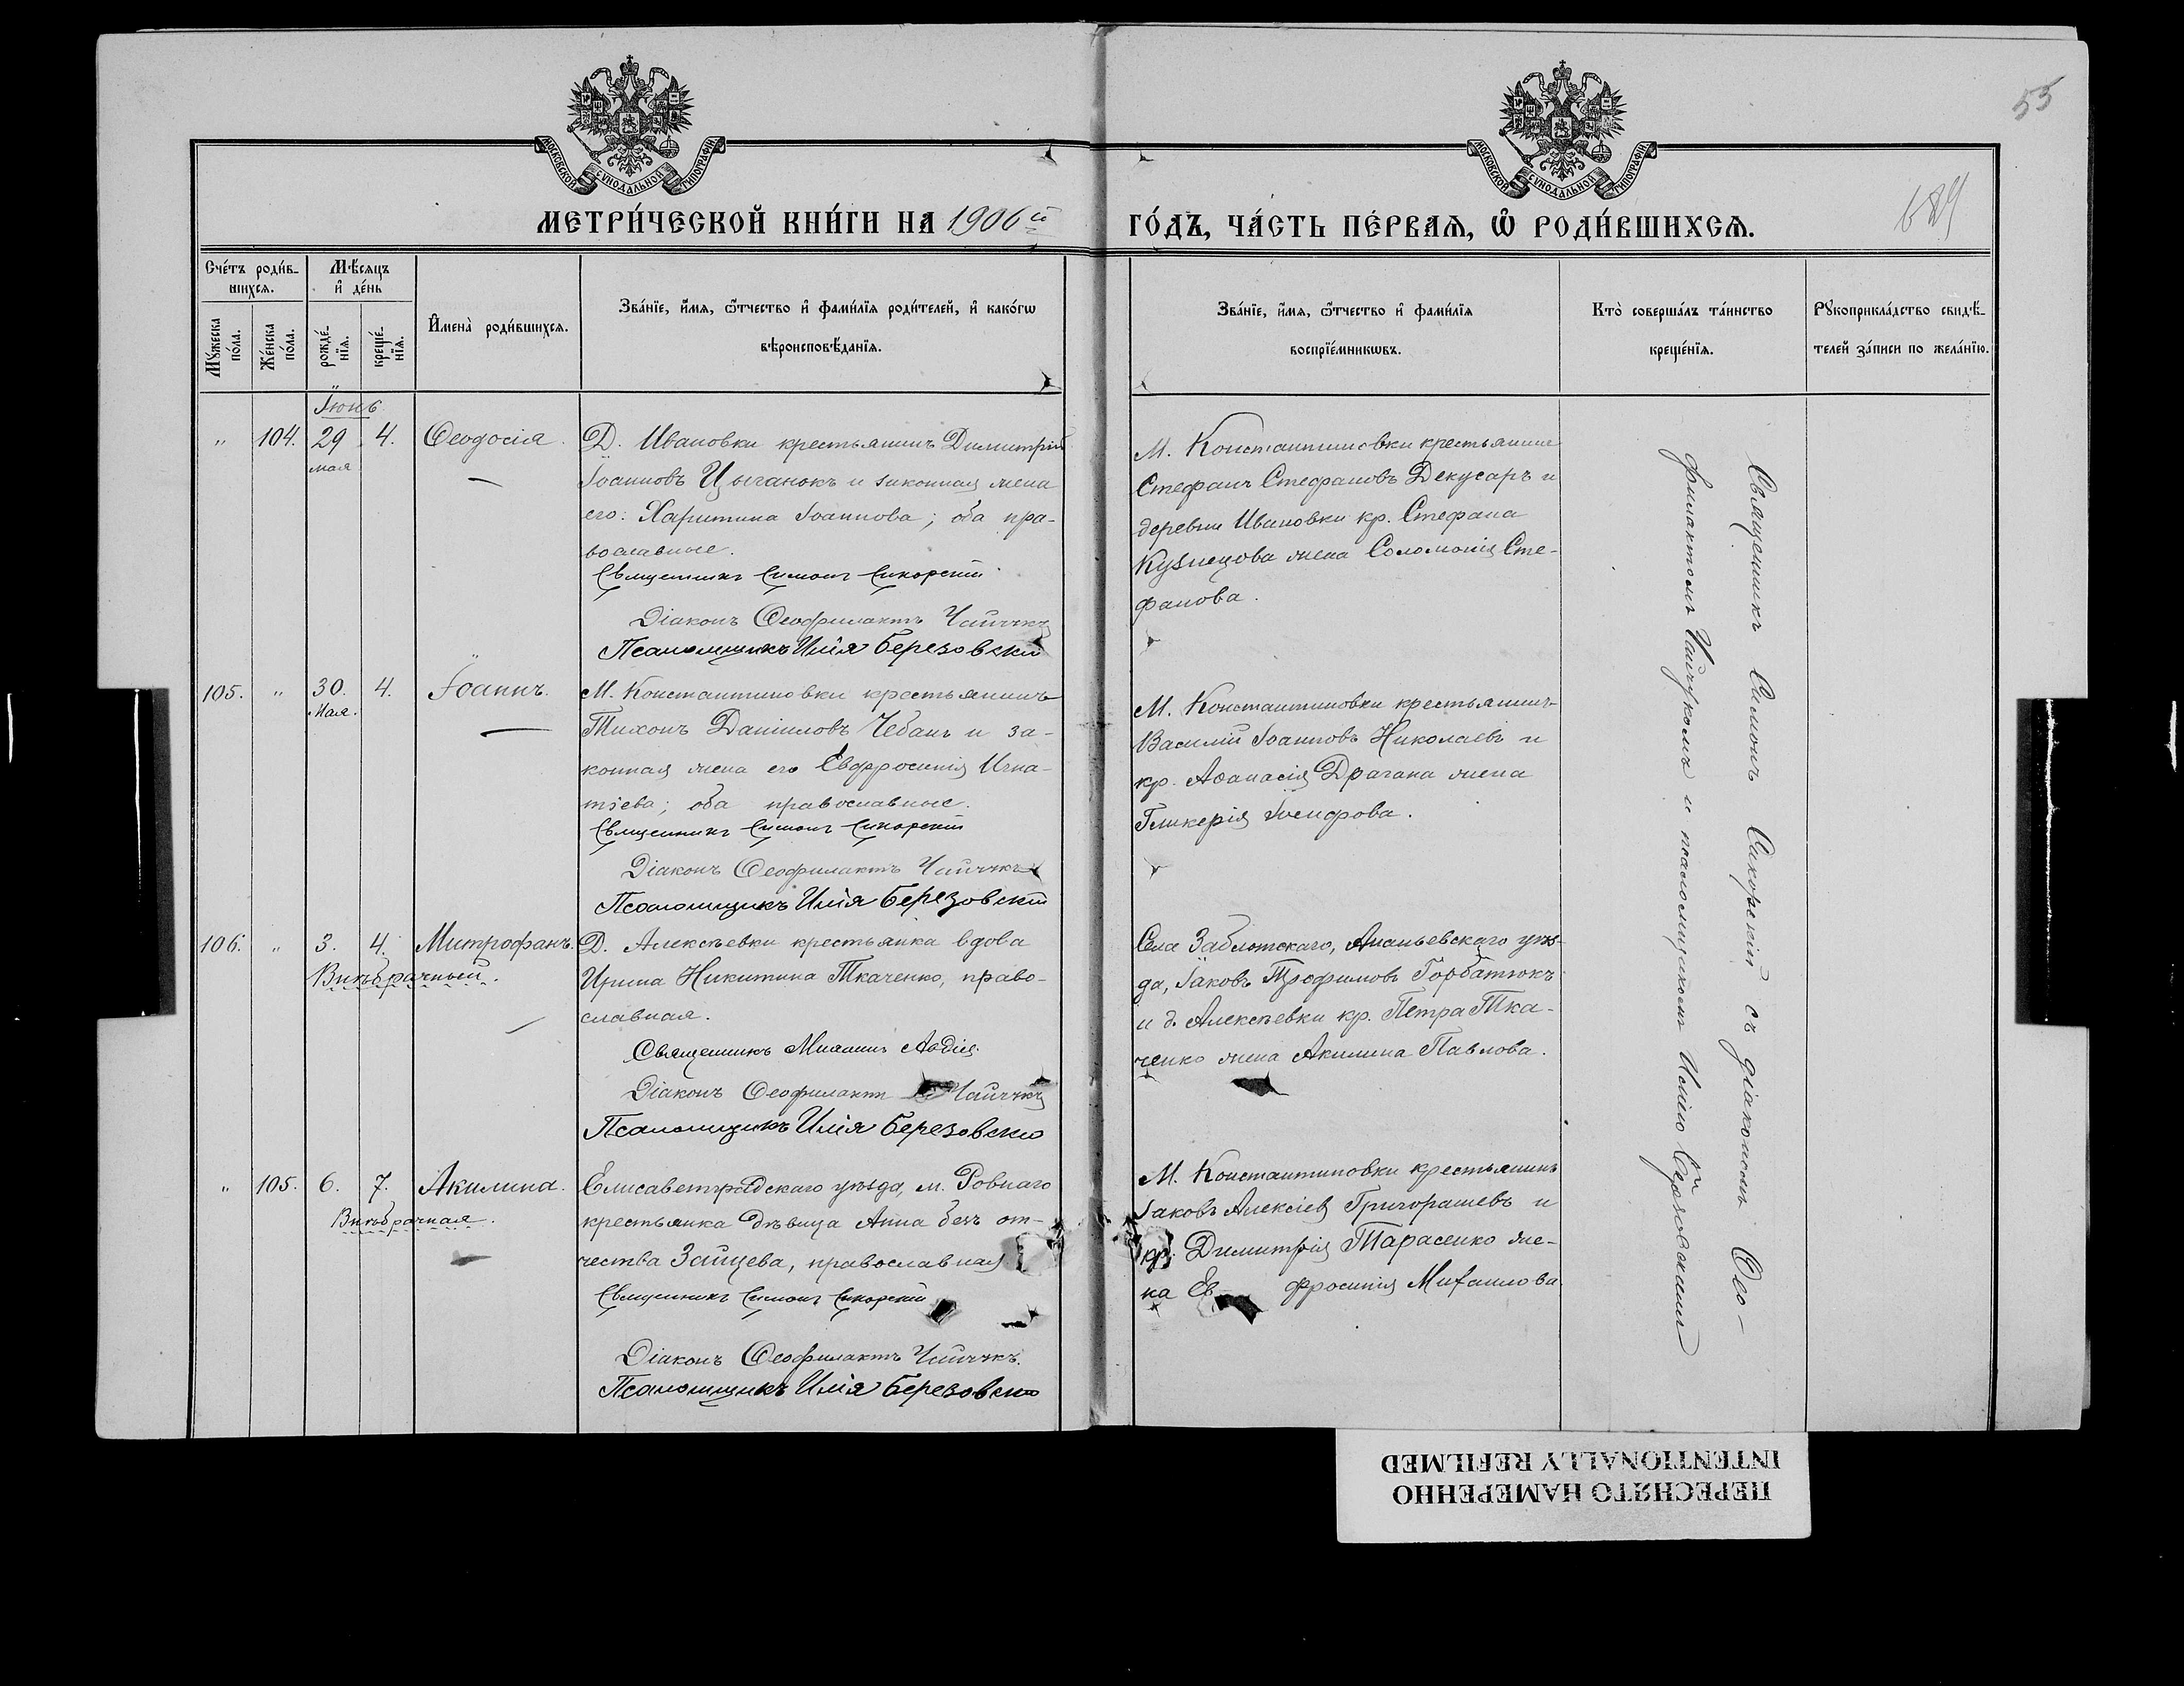 55
689
МОСКОВСКОЙ СѴНОДАЛЬНОЙ ТИПОГРАФІИ
МОСКОВСКОЙ СѴНОДАЛЬНОЙ ТИПОГРАФІИ
МЕТРИ́ЧЕСКОЙ КНИ́ГИ НА 1906й
ГО́ДЪ, ЧА́СТЬ ПЕ́РВАѦ, Ѡ҆ РОДИ́ВШИХСѦ.
Сче́тъ роди́в-
шихсѧ.
Мꙋ́жеска
по́ла.
Же́нска
по́ла.
Мѣ́сѧцъ
и҆ де́нь
рожде́-
нїѧ.
креще́-
нїѧ.
И҆мена̀ роди́вшихсѧ.
Зва́нїе, и҆́мѧ, ѻ҆́тчество и҆ фами́лїѧ роди́телей, и҆ како́гѡ
вѣроисповѣ́данїѧ.
Зва́нїе, и҆́мѧ, ѻ҆́тчество и҆ фами́лїѧ
воспрїе́мникѡвъ.
Кто̀ соверша́лъ та́инство
креще́нїѧ.
Рꙋкоприкла́дство свидѣ́-
телей за́писи по жела́нїю.
Іюнь
" 104. 29 4. Ѳеодосія.
мая
Д. Ивановки крестьянинъ Димитрій
Іоанновъ Цыганокъ и законная жена
его: Харитина Іоаннова; оба пра-
вославные.
Священникъ Симонъ Сикорскій
Діаконъ Ѳеофилактъ Чайчукъ
Псаломщикъ Илія Березовскій
М. Константиновки крестьянинъ
Стефанъ Стефановъ Декусаръ и
деревни Ивановки кр. Стефана
Кузнецова жена Соломонія Сте-
фанова.
105. " 30. 4. Іоаннъ.
Мая.
М. Константиновки крестьянинъ
Тихонъ Даніиловъ Чебанъ и за-
конная жена его Евфросинія Игна-
тіева; оба православные.
Священникъ Симонъ Сикорскій
Діаконъ Ѳеофилактъ Чайчукъ
Псаломщикъ Илія Березовскій
М. Константиновки крестьянинъ
Василій Іоанновъ Николаевъ и
кр. Аѳанасія Драгана жена
Гликерія Іосифова.
106. " 3. 4. Митрофанъ.
Внѣбрачный.
Д. Алексѣевки крестьянка вдова
Ирина Никитина Ткаченко, право-
славная.
Священникъ Михаилъ
Діаконъ Ѳеофилактъ Чайчукъ
Псаломщикъ Илія Березовскій
Села Заблотскаго, Ананьевскаго уѣз-
да, Іаковъ Трофимовъ Горбатюкъ
и д. Алексѣевки кр. Петра Тка-
ченко жена Акилина Павлова.
" 105. 6. 7. Акилина.
Внѣбрачная.
Елисаветградскаго уѣзда, м. Ровнаго
крестьянка дѣвица Анна безъ от-
чества Зайцева, православная
Священникъ Симонъ Сикорскій
Діаконъ Ѳеофилактъ Чайчукъ.
Псаломщикъ Илія Березовскій
М. Константиновки крестьянинъ
Іаковъ Алексіевъ Григорашевъ и
кр. Димитрія Тарасенко же-
на Ев фросинія Михаилова
Священникъ Симонъ Сикорскій съ діакономъ Ѳео-
филактомъ Чайчукомъ и псаломщикомъ Иліею Березовскимъ
ПЕРЕСНЯТО НАМЕРЕННО
INTENTIONALLY REFILMED